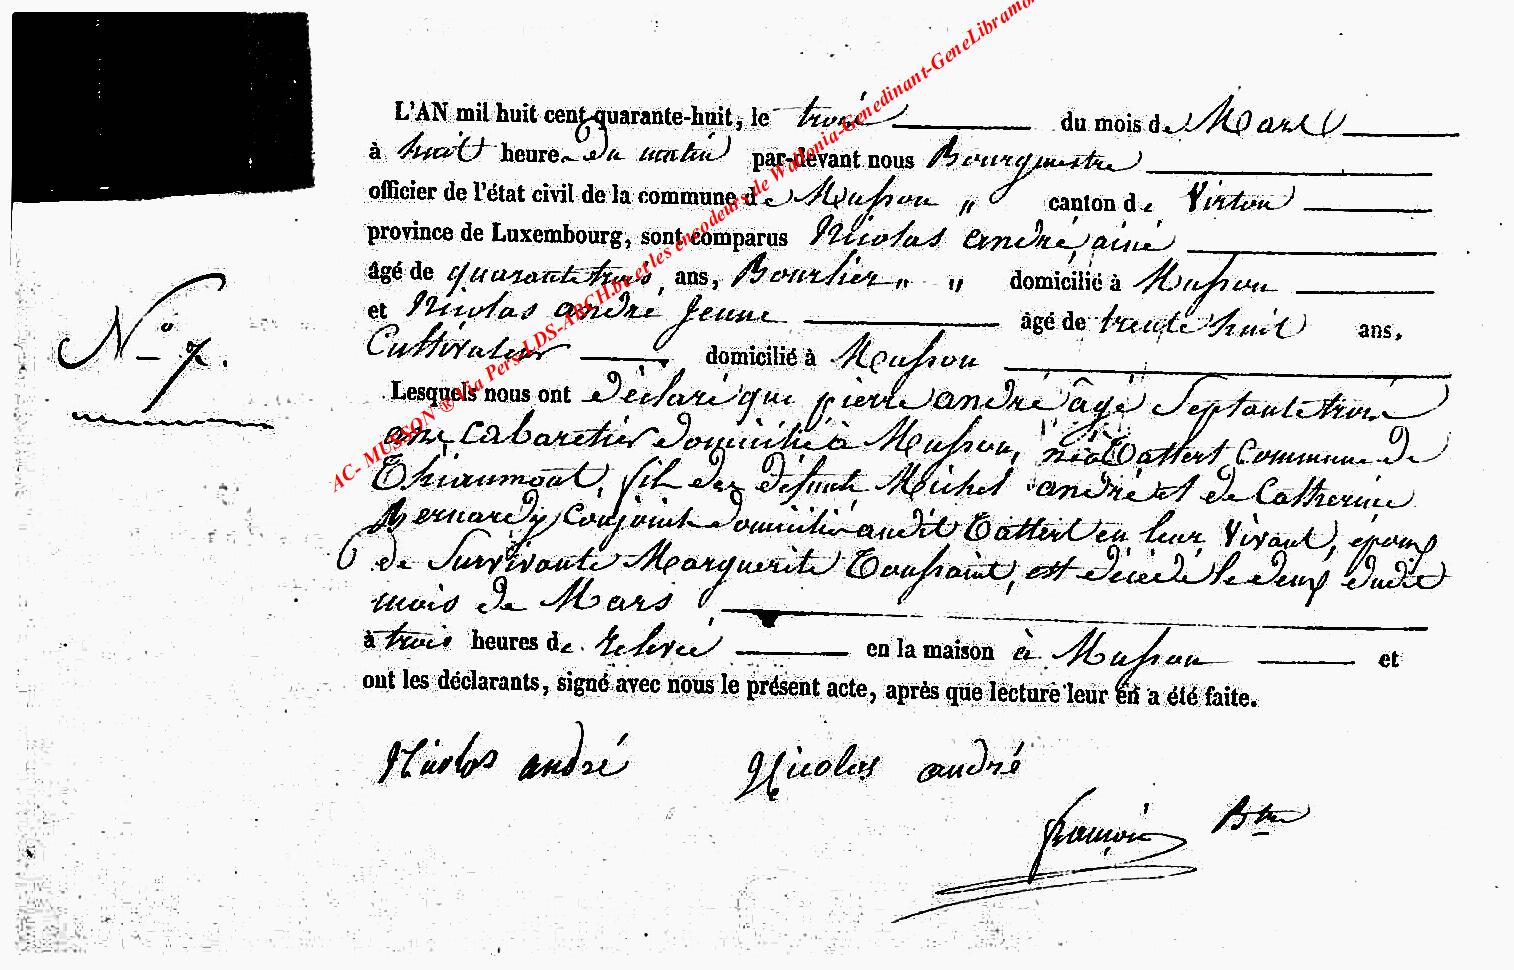 AC- MUSSON ® Via Pers-LDS-ARCH.be et les encodeurs de Wallonia-Genedinant-GeneLibramo
L'AN mil huit cent quarante-huit, le trois du mois de Mars
à huit heure du matin par-devant nous Bourgmestre
officier de l'état civil de la commune de Musson " canton de Virton
province de Luxembourg, sont comparus Nicolas andré, ainé
âgé de quarante trois ans, Bourlier " " domicilié à Musson
et Nicolas andré Jeune âgé de trente huit ans.
Cultivateur domicilié à Musson
N° 7.
Lesquels nous ont déclaré que pierre andré âgé Septante trois
ans, Cabaretier domicilié à Musson, né à Tattert Commune de
Thiaumont, fils des défunts Michel andré et de Catherine
Bernardy Conjoints domiciliés audit Tattert en leur Vivant, époux
de Survivante Marguerite Toussaint, est décédé le deux dudit
mois de Mars
à trois heures de relevée en la maison à Musson et
ont les déclarants, signé avec nous le présent acte, après que lecture leur en a été faite.
Nicolas andré Nicolas andré
Btre